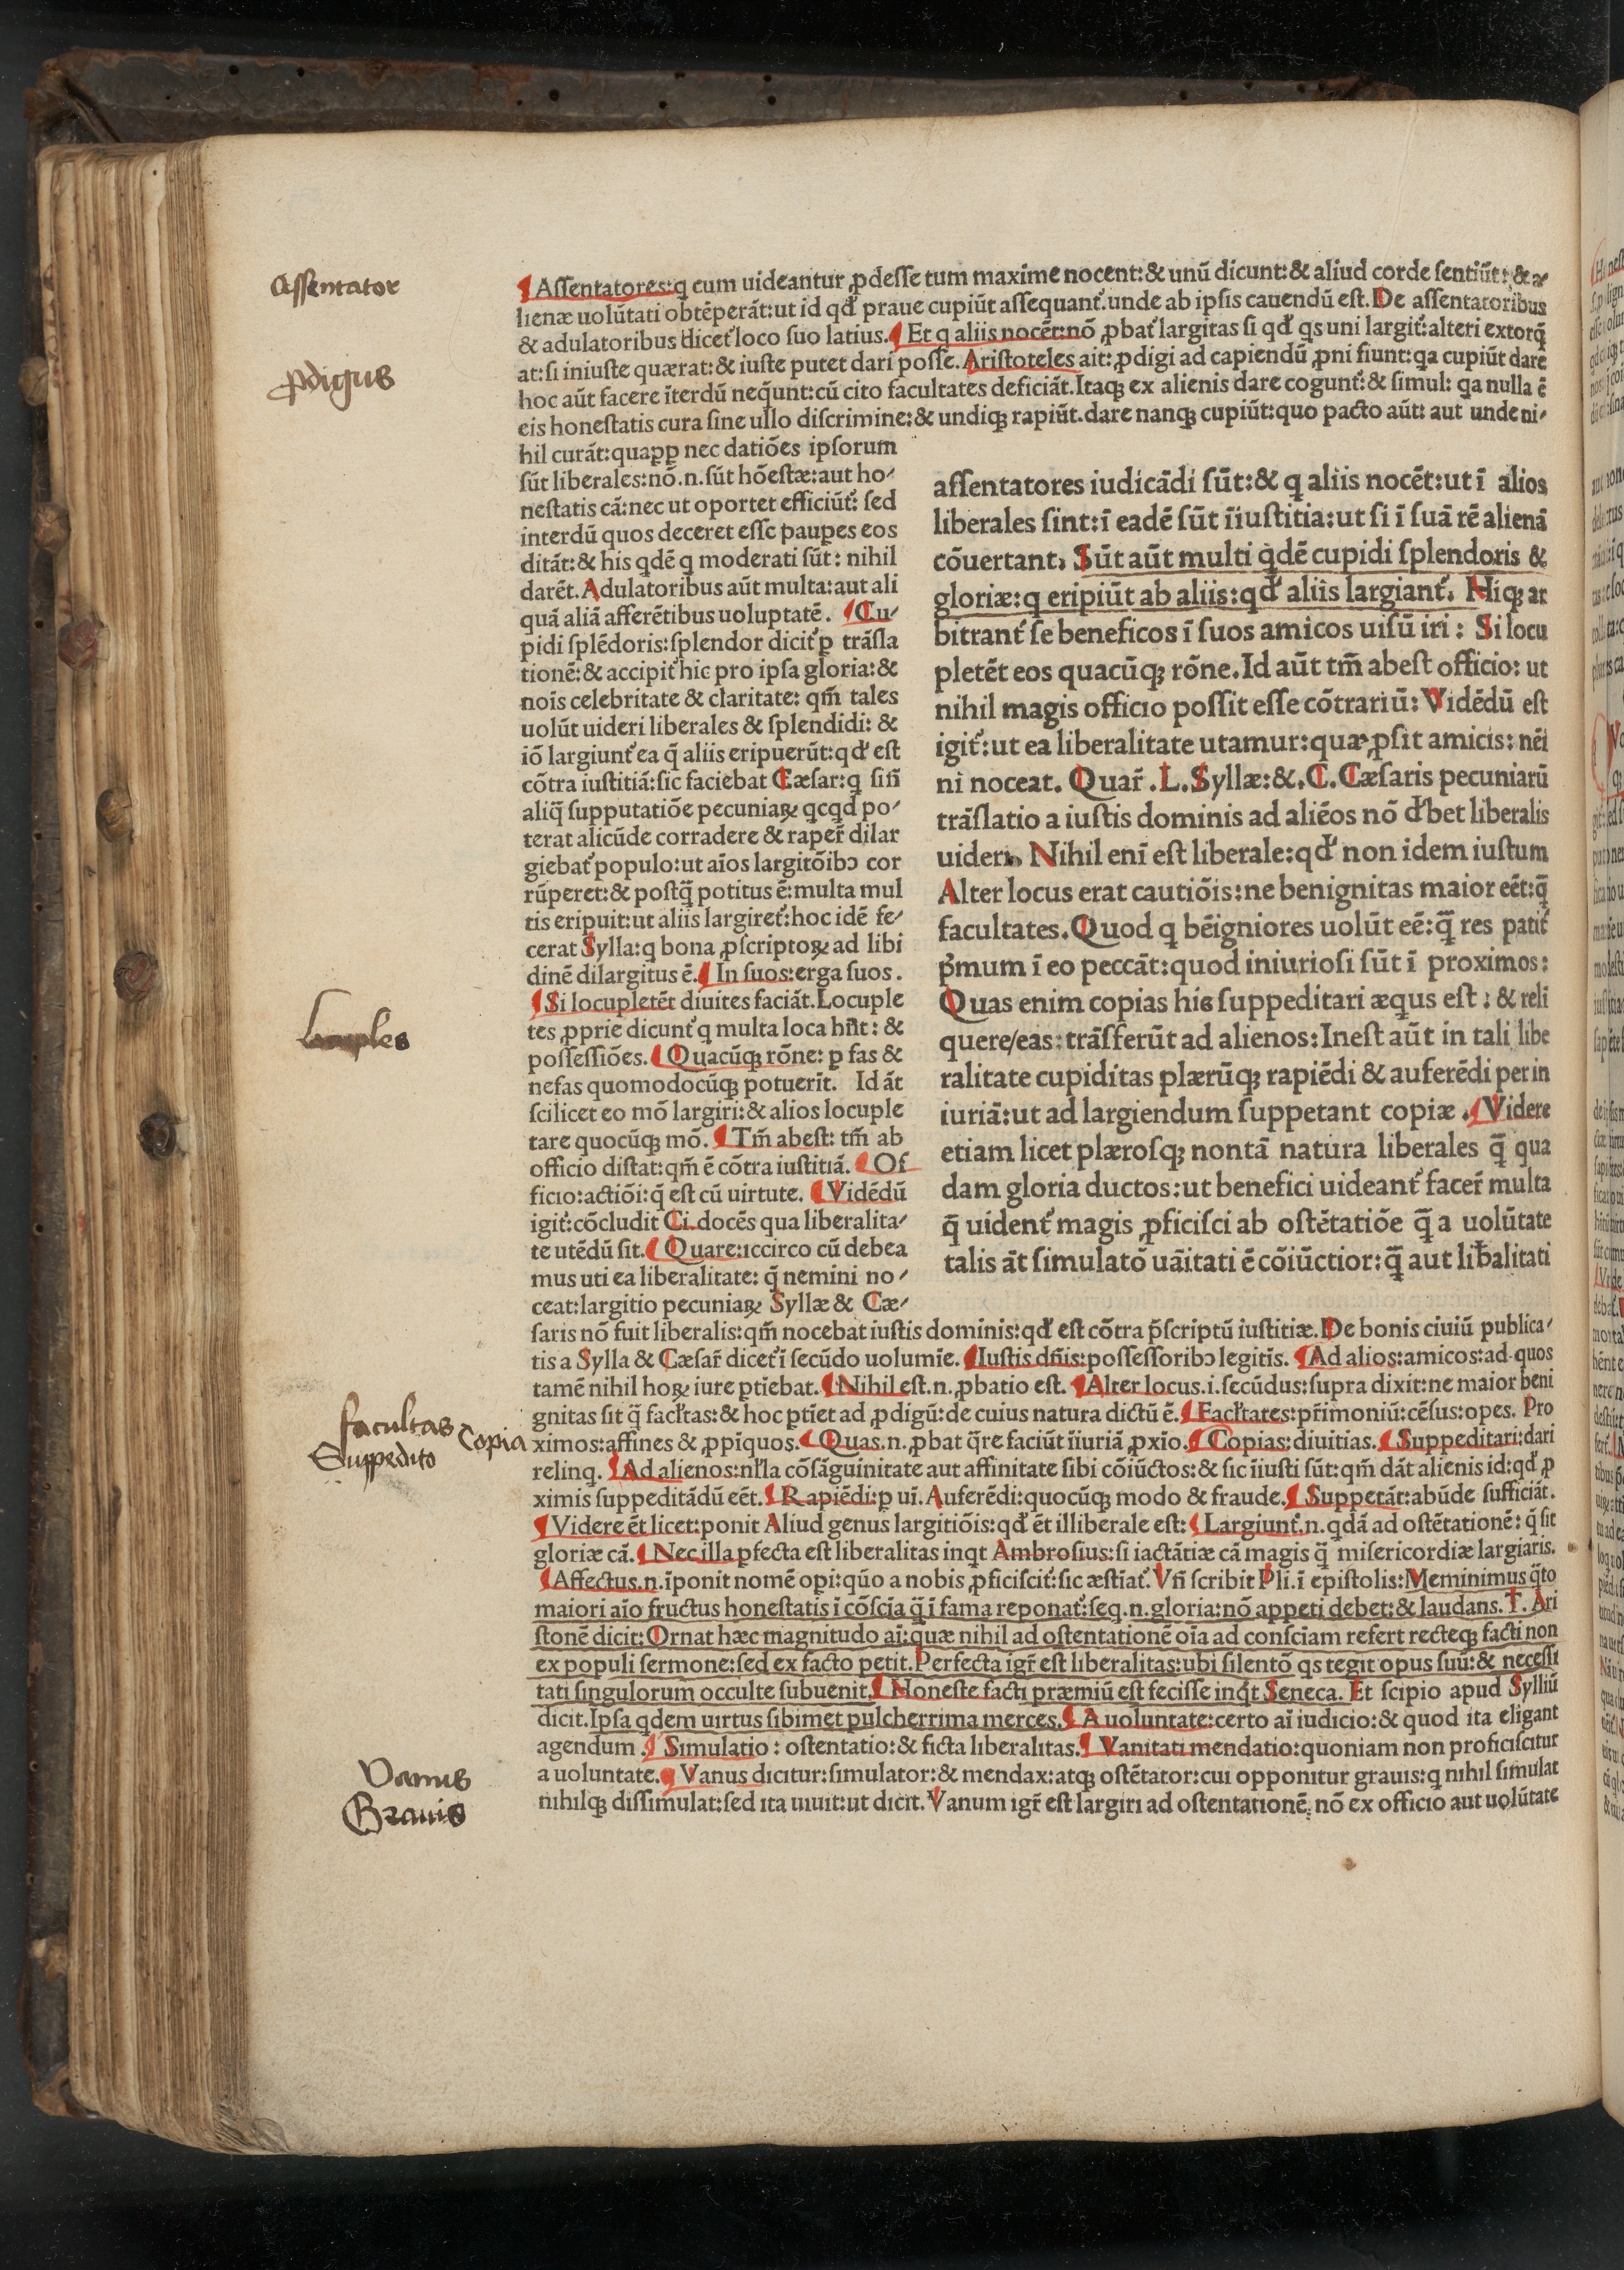 Assentator
ꝓdigus
¶Aſſentatores:q cum uideantur ꝓdeſſe tum maxime nocent:& unū dicunt:& aliud corde ſentiūt:& a⸗
lienæ uolūtati obtēperāt:ut id qđ praue cupiūt aſſequant᷑.unde ab ipſis cauendū eſt.De aſſentatoribus
& adulatoribus dicet᷑ loco ſuo latius.¶Et q aliis nocēt:nō ꝓbat᷑ largitas ſi qđ qs uni largit᷑:alteri extorq̄
at:ſi iniuſte quærat:& iuſte putet dari poſſe.Ariſtoteles ait:ꝓdigi ad capiendū ꝓni fiunt:qa cupiūt dare
hoc aūt facere īterdū neq̄unt:cū cito facultates deficiāt.Itaqꝫ ex alienis dare cogunt᷑:& ſimul: qa nulla ē
eis honeſtatis cura ſine ullo diſcrimine:& undiqꝫ rapiūt.dare nanqꝫ cupiūt:quo pacto aūt: aut unde ni⸗
hil curāt:quaꝓꝑ nec datiōes ipſorum
ſūt liberales:nō.n.ſūt hōeſtæ:aut ho⸗
neſtatis cā:nec ut oportet efficiūt᷑: ſed
interdū quos deceret eſſe pauꝑes eos
ditāt:& his qdē q moderati ſūt: nihil
darēt.Adulatoribus aūt multa:aut ali
quā aliā afferētibus uoluptatē. ¶Cu⸗
pidi ſplēdoris:ſplendor dicit᷑ ꝑ trāſla
tionē:& accipit᷑ hic pro ipſa gloria:&
nois celebritate & claritate: qm̄ tales
uolūt uideri liberales & ſplendidi: &
iō largiunt᷑ ea q̄ aliis eripuerūt:qđ eſt
cōtra iuſtitiā:ſic faciebat Cæſar:q ſiñ
aliq̄ ſupputatiōe pecuniaꝝ qcqd po⸗
terat alicūde corradere & raper̄ dilar
giebat᷑ populo:ut aīos largitōibↄ cor
rūperet:& poſtq̄ potitus ē:multa mul
tis eripuit:ut aliis largiret᷑:hoc idē fe⸗
cerat Sylla:q bona ꝓſcriptoꝝ ad libi
dinē dilargitus ē.¶In ſuos:erga ſuos.
¶Si locupletēt diuites faciāt.Locuple
tes ꝓprie dicunt᷑ q multa loca hñt: &
poſſeſſiōes.¶Quacūqꝫ rōne: ꝑ fas &
nefas quomodocūqꝫ potuerit. Id āt
ſcilicet eo mō largiri:& alios locuple
tare quocūqꝫ mō.¶Tm̄ abeſt: tm̄ ab
officio diſtat:qm̄ ē cōtra iuſtitiā.¶Of
ficio:actiōi:q̄ eſt cū uirtute. ¶Vidēdū
igit᷑:cōcludit Ci.docēs qua liberalita⸗
te utēdū ſit.¶Quare:iccirco cū debea
mus uti ea liberalitate: q̄ nemini no⸗
ceat:largitio pecuniaꝝ Syllæ & Cæ⸗
locuples
aſſentatores iudicādi ſūt:& q aliis nocēt:ut ī alios
liberales ſint:ī eadē ſūt īiuſtitia:ut ſi ī ſuā rē alienā
cōuertant. Sūt aūt multi q̇dē cupidi ſplendoris &
gloriæ:q eripiūt ab aliis:qđ aliis largiant᷑. Hiqꝫ ar
bitrant᷑ ſe beneficos ī ſuos amicos uiſū iri: Si locu
pletēt eos quacūqꝫ rōne.Id aūt tm̄ abeſt officio: ut
nihil magis officio poſſit eſſe cōtrariū: Vidēdū eſt
igit᷑:ut ea liberalitate utamur:quæ ꝓſit amicis: nēi
ni noceat. Quar̄ .L.Syllæ:&.C.Cæſaris pecuniarū
trāſlatio a iuſtis dominis ad aliēos nō đbet liberalis
uideri. Nihil enī eſt liberale:qđ non idem iuſtum
Alter locus erat cautiōis:ne benignitas maior eēt:q̄
facultates.Quod q bēigniores uolūt eē:q̄ res patit᷑
p̄mum ī eo peccāt:quod iniurioſi ſūt ī proximos:
Quas enim copias his ſuppeditari æqus eſt: & reli
quere/eas:trāſferūt ad alienos:Ineſt aūt in tali libe
ralitate cupiditas plærūqꝫ rapiēdi & auferēdi per in
iuriā:ut ad largiendum ſuppetant copiæ.¶Videre
etiam licet plæroſqꝫ nontā natura liberales q̄ qua
dam gloria ductos:ut benefici uideant᷑ facer̄ multa
q̄ uident᷑ magis ꝓficiſci ab oſtētatiōe q̄ a uolūtate
talis āt ſimulatō uāitati ē cōiūctior:q̄ aut lib̄alitati
ſaris nō fuit liberalis:qm̄ nocebat iuſtis dominis:qđ eſt cōtra p̄ſcriptū iuſtitiæ.De bonis ciuiū publica⸗
tis a Sylla & Cæſar̄ dicet᷑ ī ſecūdo uolumīe.¶Iuſtis dñis:poſſeſſoribↄ legitīs.¶Ad alios:amicos:ad quos
tamē nihil hoꝝ iure ꝑtiebat.¶Nihil eſt.n.ꝓbatio eſt.¶Alter locus.i.ſecūdus:ſupra dixit:ne maior beni
gnitas ſit q̄ facl̄tas:& hoc ꝑtiet ad ꝓdigū:de cuius natura dictū ē.¶Facl̄tates:pr̄imoniū:cēſus:opes. Pro
ximos:affines & ꝓpīquos.¶Quas.n.ꝓbat q̄re faciūt īiuriā ꝓxīo.¶Copias:diuitias.¶Suppeditari:dari
relinq.¶Ad alienos:nl̄la cōſāguinitate aut affinitate ſibi cōiūctos:& ſic īiuſti ſūt:qm̄ dāt alienis id:qđ ꝓ
ximis ſuppeditādū eēt.¶Rapiēdi:ꝑ uī.Auferēdi:quocūqꝫ modo & fraude.¶Suppetāt:abūde ſufficiāt.
¶Videre ēt licet:ponit Aliud genus largitiōis:qđ ēt illiberale eſt:¶Largiunt᷑.n.qdā ad oſtētationē:q̄ ſit
gloriæ cā.¶Nec illa ꝑfecta eſt liberalitas inqt Ambroſius:ſi iactātiæ cā magis q̄ miſericordiæ largiaris.
¶Affectus.n.īponit nomē oꝑi:qūo a nobis ꝓficiſcit᷑:ſic æſtīat᷑.Vñ ſcribit Pli.ī epiſtolis:Meminimus q̄to
maiori aīo fructus honeſtatis ī cōſcīa q̄ ī fama reponat᷑:ſeq.n.gloria:nō appeti debet:& laudans.T.Ari
ſtonē dicit:Ornat hæc magnitudo aī:quæ nihil ad oſtentationē oīa ad conſciam refert recteqꝫ facti non
ex populi ſermone:ſed ex facto petit.Perfecta igr̄ eſt liberalitas:ubi ſilentō qs tegit opus ſuū:& neceſſi
tati ſingulorum occulte ſubuenit.¶Honeſte facti præmiū eſt feciſſe inq̇t Seneca. Et ſcipio apud Sylliū
dicit.Ipſa qdem uirtus ſibimet pulcherrima merces.¶A uoluntate:certo aī iudicio:& quod ita eligant
agendum.¶Simulatio: oſtentatio:& ficta liberalitas.¶Vanitati mendatio:quoniam non proficiſcitur
a uoluntate.¶Vanus dicitur:ſimulator:& mendax:atqꝫ oſtētator:cui opponitur grauis:q nihil ſimulat
nihilqꝫ diſſimulat:ſed ita uiuit:ut dicit.Vanum igr̄ eſt largiri ad oſtentationē: nō ex officio aut uolūtate
facultas
Copia
Suppedito
Vanus
Grauis